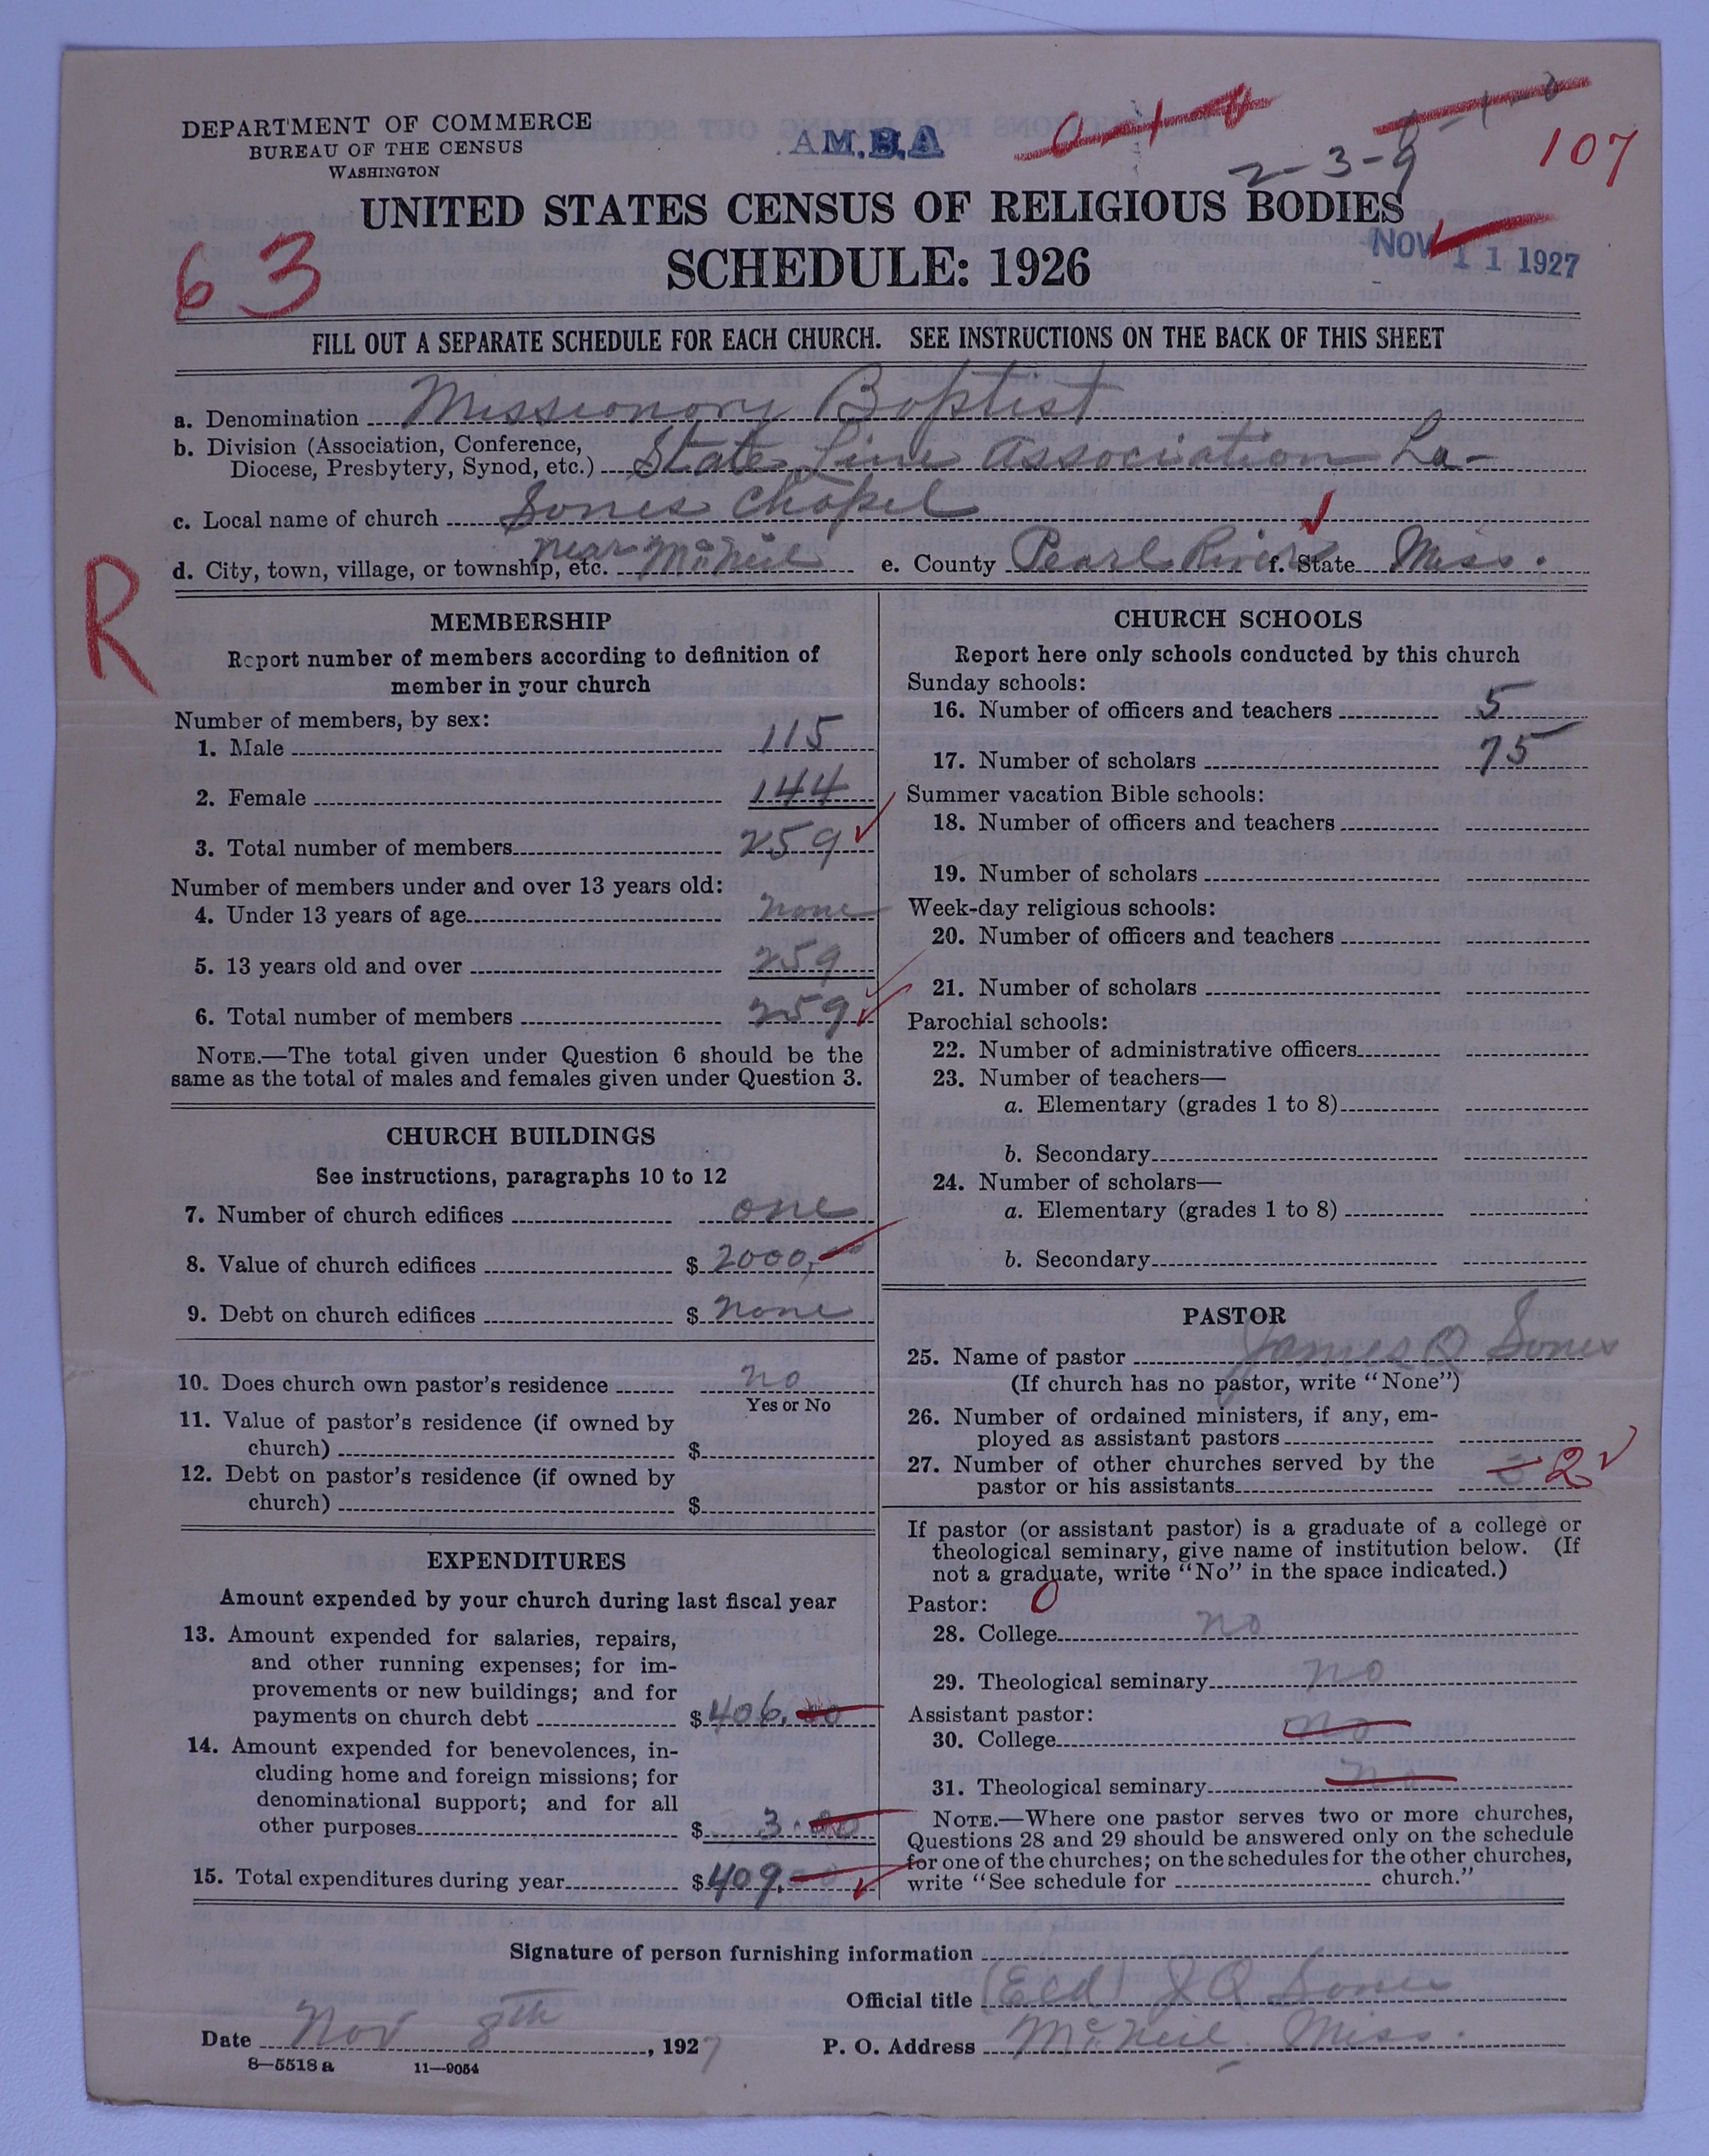 DEPARTMENT OF COMMERCE
BUREAU OF THE CENSUS
WASHINGTON
A.M.B.A
0-1-0
2-3-9
107
UNITED STATES CENSUS OF RELIGIOUS BODIES
SCHEDULE: 1926
NOV 11 1927
63
FILL OUT A SEPARATE SCHEDULE FOR EACH CHURCH. SEE INSTRUCTIONS ON THE BACK OF THIS SHEET
a. Denomination Missionary Baptist
b. Division (Association, Conference,
Diocese, Presbytery, Synod, etc.) State Line Association La-
c. Local name of church Sones Chapel
d. City, town, village, or township, etc. near McNeil e. County Pearl River f. State Miss.
R
MEMBERSHIP
Report number of members according to definition of
member in your church
Number of members, by sex:
1. Male 115
2. Female 144
3. Total number of members 259
Number of members under and over 13 years old:
4. Under 13 years of age none
5. 13 years old and over 259
6. Total number of members 259
NOTE.—The total given under Question 6 should be the
same as the total of males and females given under Question 3.
CHURCH BUILDINGS
See instructions, paragraphs 10 to 12
7. Number of church edifices one
8. Value of church edifices $ 2000,
9. Debt on church edifices $ none
10. Does church own pastor's residence no
Yes or No
11. Value of pastor's residence (if owned by
church) $
12. Debt on pastor's residence (if owned by
church) $
EXPENDITURES
Amount expended by your church during last fiscal year
13. Amount expended for salaries, repairs,
and other running expenses; for im-
provements or new buildings; and for
payments on church debt $ 406.00
14. Amount expended for benevolences, in-
cluding home and foreign missions; for
denominational support; and for all
other purposes $ 3.00
15. Total expenditures during year $ 409.
CHURCH SCHOOLS
Report here only schools conducted by this church
Sunday schools:
16. Number of officers and teachers 5
17. Number of scholars 75
Summer vacation Bible schools:
18. Number of officers and teachers
19. Number of scholars
Week-day religious schools:
20. Number of officers and teachers
21. Number of scholars
Parochial schools:
22. Number of administrative officers
23. Number of teachers—
a. Elementary (grades 1 to 8)
b. Secondary
24. Number of scholars—
a. Elementary (grades 1 to 8)
b. Secondary
PASTOR
25. Name of pastor James Q Sones
(If church has no pastor, write "None")
26. Number of ordained ministers, if any, em-
ployed as assistant pastors
27. Number of other churches served by the
pastor or his assistants 2
If pastor (or assistant pastor) is a graduate of a college or
theological seminary, give name of institution below. (If
not a graduate, write "No" in the space indicated.)
Pastor: 0
28. College no
29. Theological seminary no
Assistant pastor:
30. College no
31. Theological seminary no
NOTE.—Where one pastor serves two or more churches,
Questions 28 and 29 should be answered only on the schedule
for one of the churches; on the schedules for the other churches,
write "See schedule for church."
Signature of person furnishing information
Official title (Eld) J Q Sones
Date Nov 8th, 1927 P. O. Address McNeil, Miss.
8—5518 a 11—9054